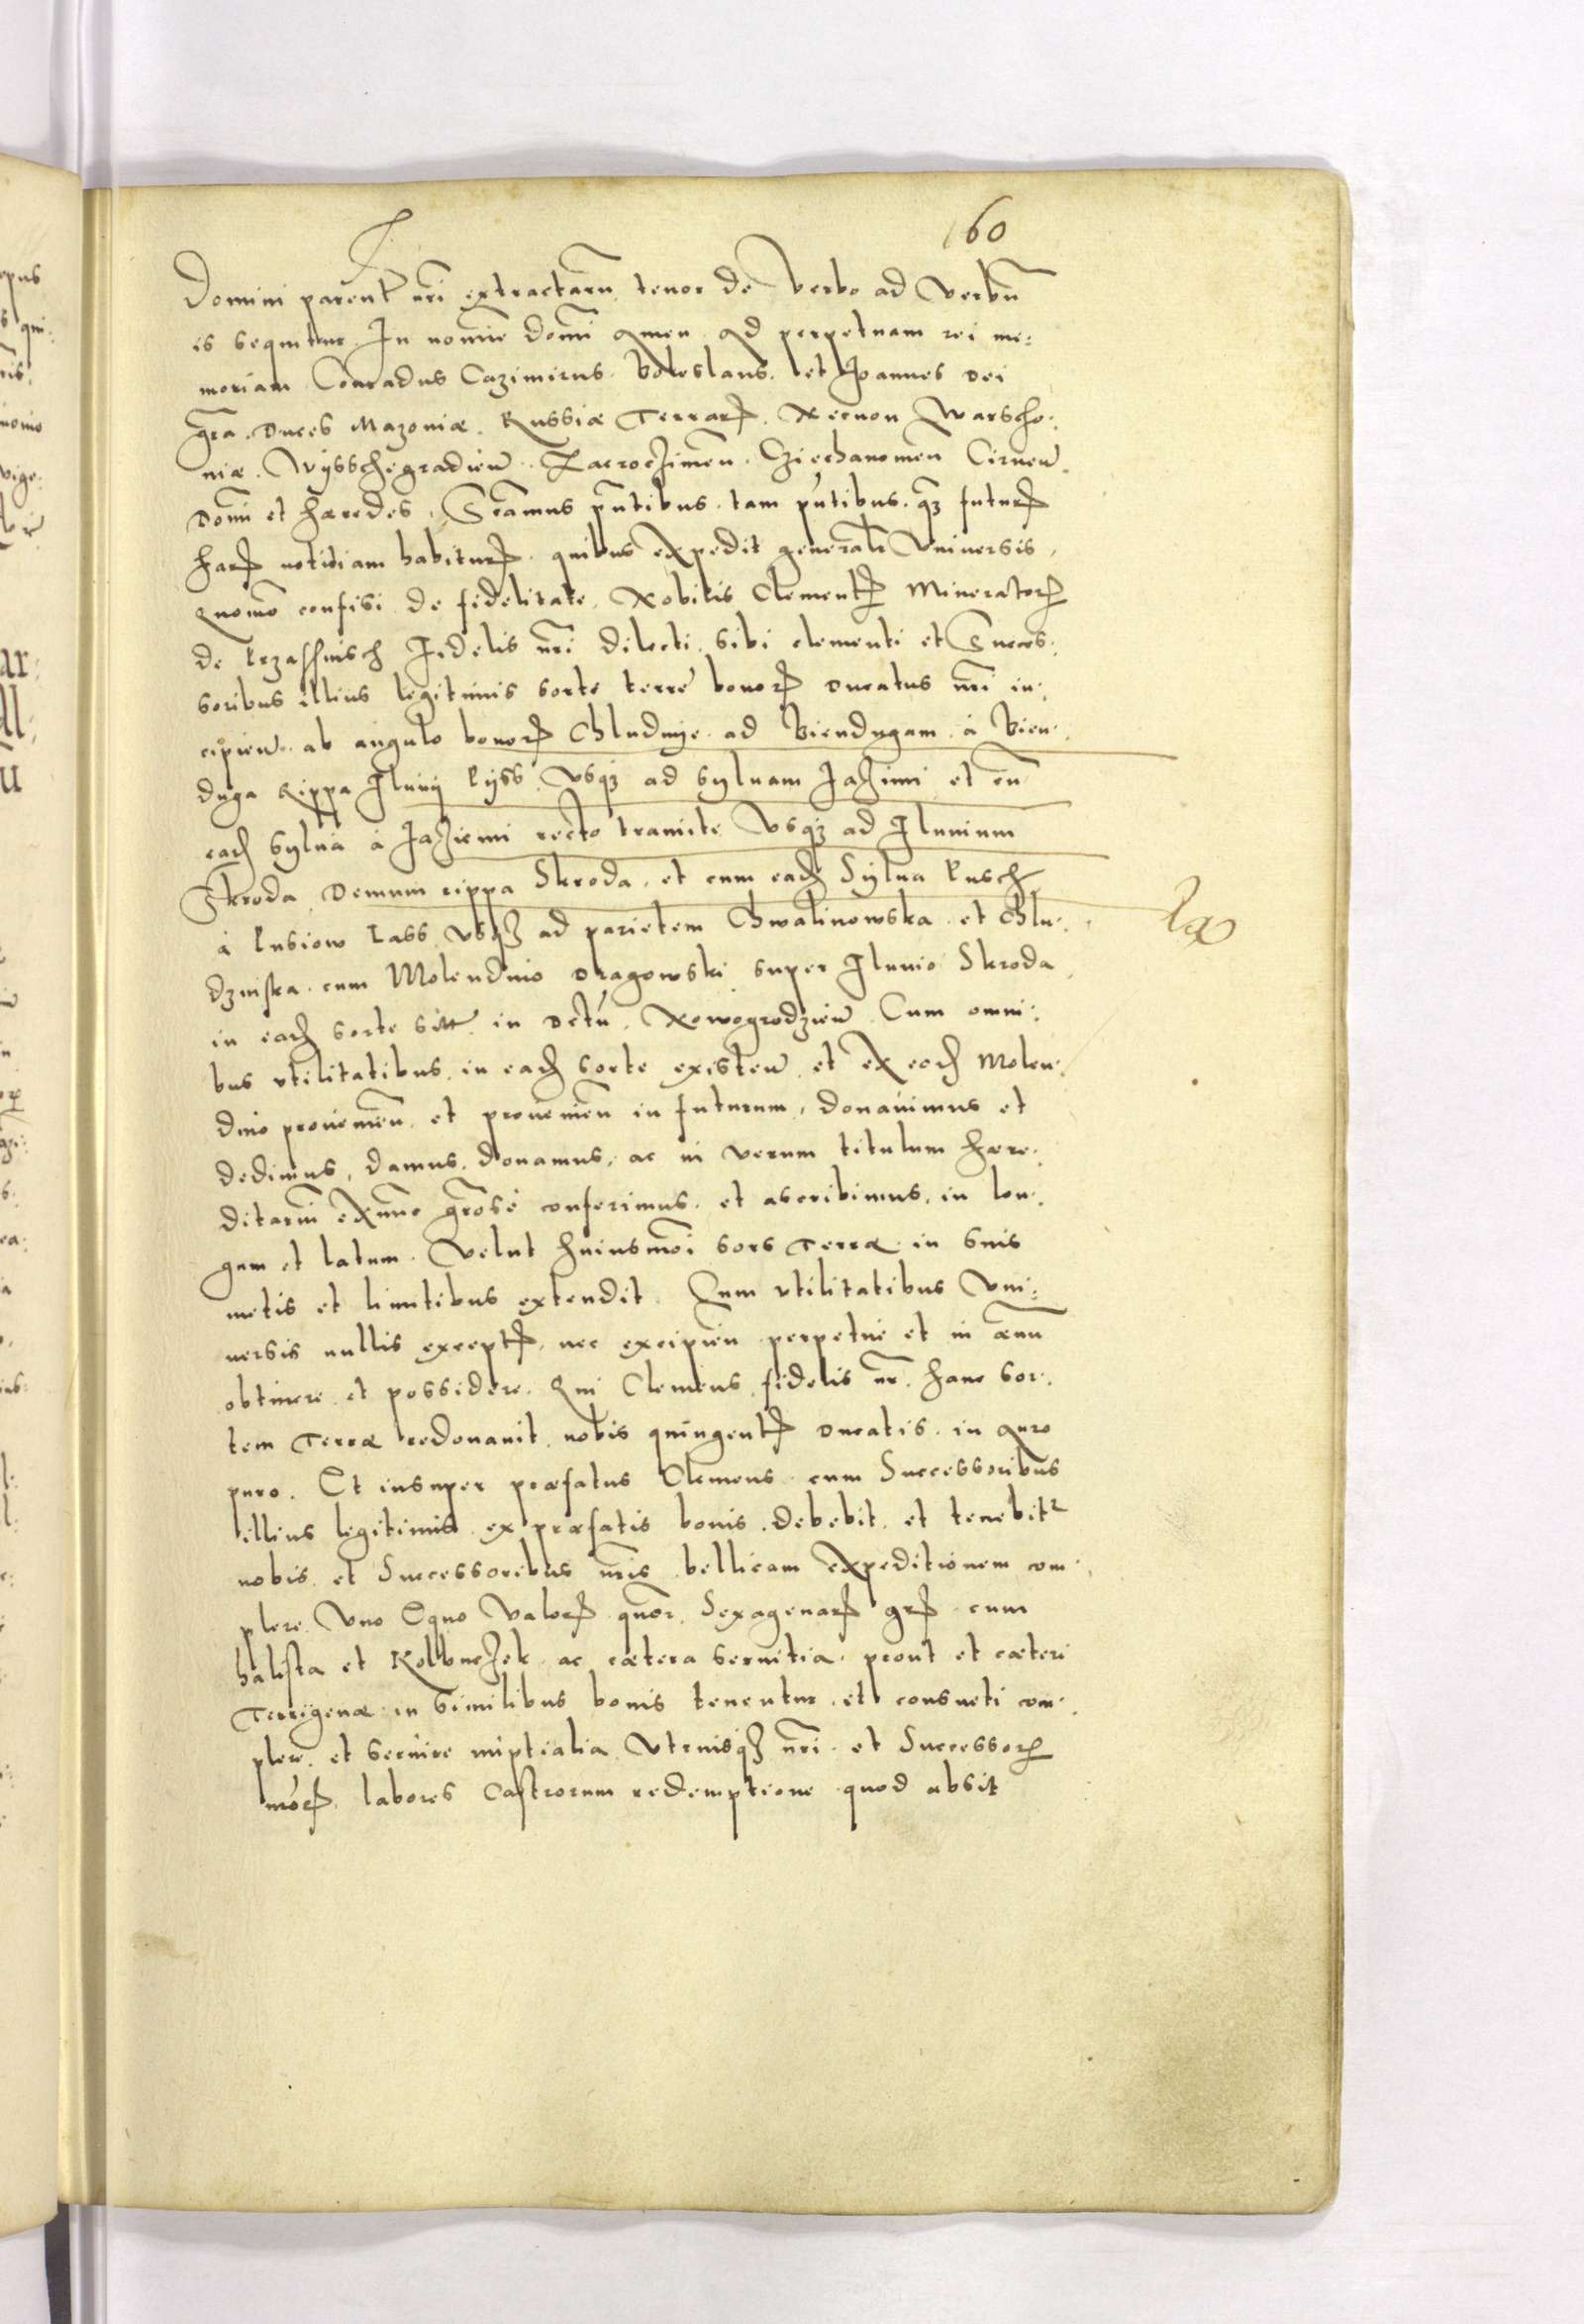 160
Domini parent nri extractarũ tenor de Verbo ad Verbũ
is sequitur. In nomie Domi Amen. Ad perpetuam rei me:
moriam Conradus Cazimirus. Boleslaus. et Joannes Dei
gra. Duces Mazoniæ. Russiæ Terrarꝝ. Necnon Warscho:
niæ. Wysschegradien̄. Zacroczimen̄. Cziechanomen̄ Cirnen̄.
Domi et hæredes. pn̄tibus. tam pn̄tibus. qꝫ futurꝝ
harꝝ notitiam habiturꝝ. quibus expedit generalr Vniuersis.
Quomo confisi de fidelitate. Nobilis Clementꝭ Mineratorꝭ
de Przassnisch Fidelis nri dilecti. sibi clementi et Succes:
soribus illius legitimis sorte terre bonorꝝ Ducatus nri in:
cipien̄. ab angulo bonorꝝ Chludnye. ad Biendugam. à Bien:
duga Rippa Fluuij Pyss. Vsqꝫ ad syluam Jazimi et cũ
eadꝫ Sylua à Jaziemi recto tramite Vsqꝫ ad Fluuium
Skroda Demum rippa Skroda. et cum eadꝫ Sylua Pusch
à Pusiow Lass Vsqꝫ ad parietem Chwalinowska et Chlu:
dzinska. cum Molendino Dragowski super Fluuio Skroda
in eadꝫ sorte sitt in Dctũ. Nowogrodzien̄. Cum omni:
bus vtilitatibus. in eadꝫ sorte existen̄. et ex eodꝫ Molen:
dino prouemen̄. et prouenien̄ in futurum, donauimus et
dedimus, damus. donamus, ac in verum titulum hære:
ditariũ exnunc grose conferimus. et ascribimus. in lon:
gum et latum. Velut huiusmõi sors Terræ. in suis
metis et limitibus extendit. Cum vtilitatibus Vni:
uersis nullis exceptꝭ, nec excipien̄ perpetue et in æuũ
obtinere et possidere. Qui Clemens fidelis nr̄. hanc sor:
tem Terræ redonauit. nobis quingentꝭ Ducatis. in Auro
puro. Et insuper præfatus Clemens. cum Successoribus
illius legitimis ex præfatis bonis. debebit. et tenebitr
nobis. et Successoribus nris bellicam expeditionem com:
plere Vno Equo Valorꝭ quor. Sexagenarꝝ grꝝ. cum
balista et Kolbuczek. ac cætera seruitia. prout et cæteri
Terrigenæ in similibus bonis tenentur. et consueti com:
plere. et seruire nuptialia Vtriusqꝫ nri. et Successorꝭ
nrorꝝ. labores Castrorum redemptione quod absit